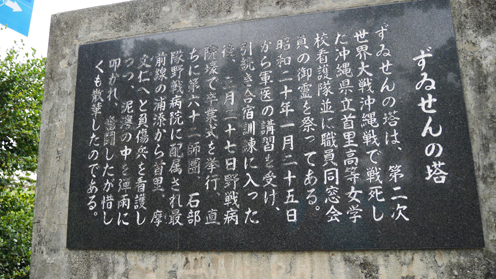 ずゐせんの塔
ずゐせんの塔は、第二次
世界大戦沖縄戦で戦死し
た沖縄県立首里高等女学
校看護隊並に職員同窓会
員の御霊を祭ってある。
昭和二十年一月二十五日
から軍医の講習を受け、
引続き合宿訓練に入った
後、三月二十七日野戦病
院壕で卒業式を挙行、直
ちに第六十二師團 石部
隊野戦病院に配属され最
前線の浦添から首里、摩
文仁へと負傷兵を看護し
つつ、泥濘の中を連雨に
叩かれ、奮闘したが惜し
くも散華したのである。